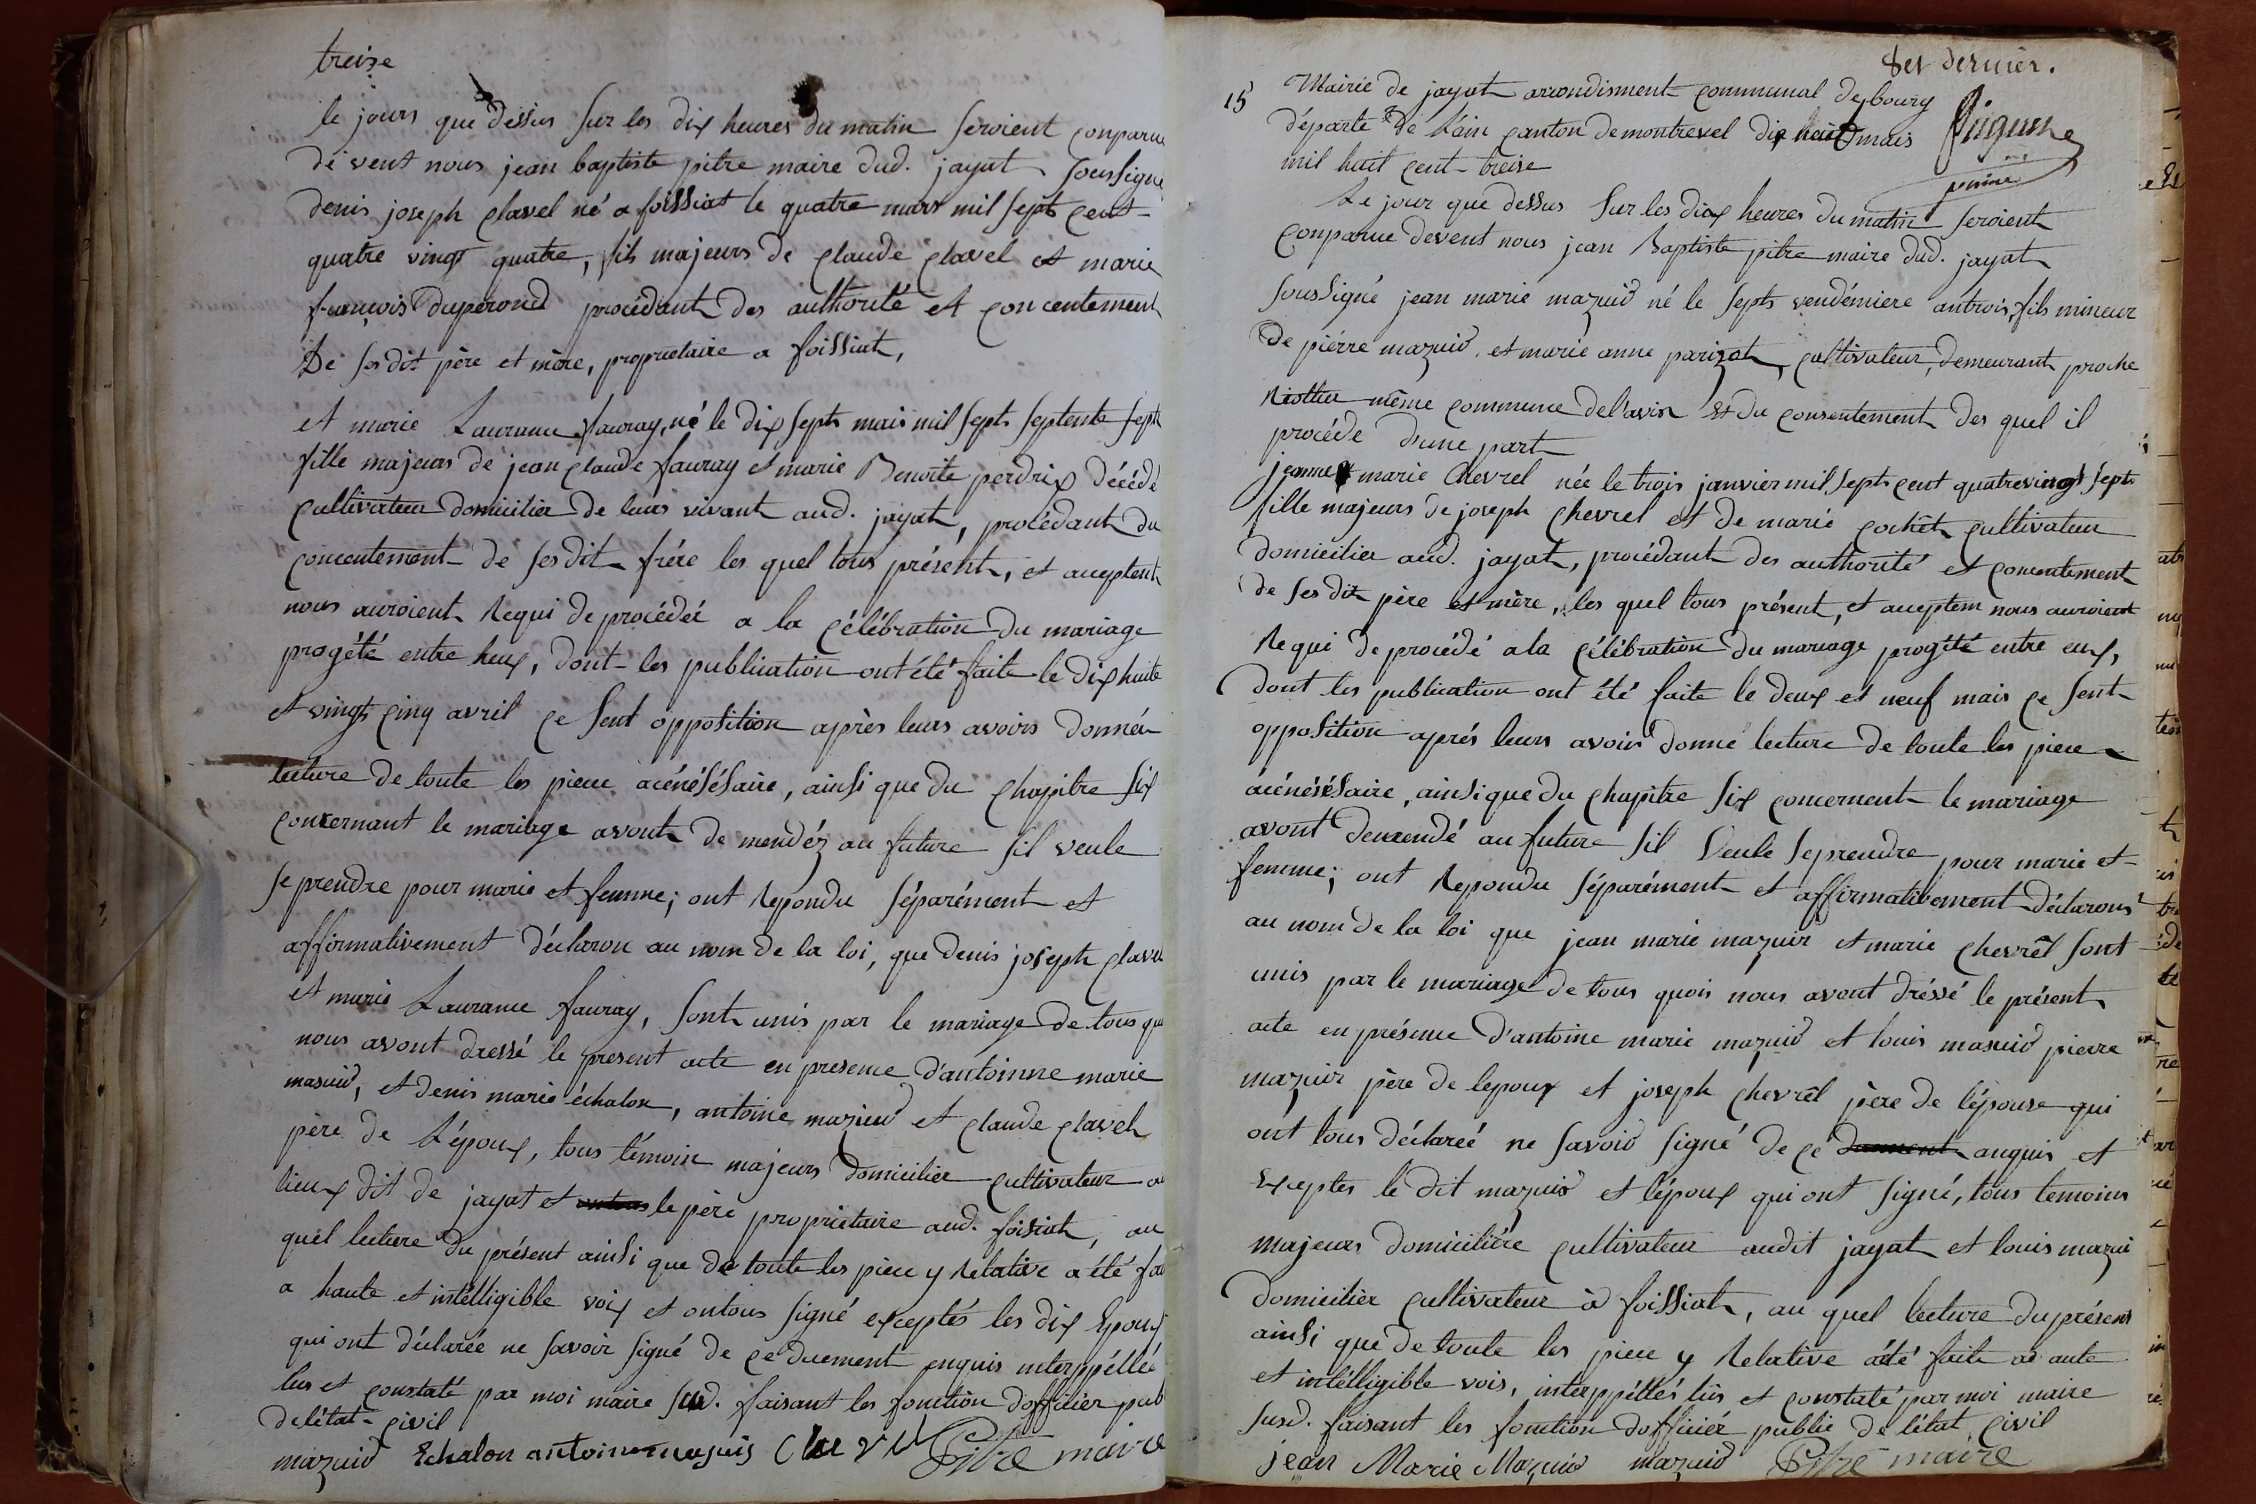 treize
le jours que dessus sur les dix heures du matin seroient conparue
de vent nous jean baptiste pitre maire dud. jayat soussigné
denis joseph clavel né a foissiat le quatre mars mil sept cent-
quatre vingt quatre, fils majeurs de claude clavel et marie
françois duperond procédant des authorité et concentement
de ses dit père et mère, proprietaire a foissiat,
et marie Laurance fauray, né le dix sept mai mil sept septente sept
fille majeurs de jean claude fauray et marie Benoite perdrix décédé
cultivateur domicilier de leurs vivant aud. jayat, procédant du
concentement de ses dit frére les quel tous présent, et acceptent
nous auroient Requi de procédéé a la célébration du mariage
progété entre heux, dont les publication ont été faite le dix huite
et vingt cinq avril ce sent opposition après leurs avoirs donnée
lecture de toute les piece acénésésaire, ainsi que du chapitre six
concernant le mariage avont de mendéz au future sil veule
se prendre pour marie et femme; ont Repondu séparément et
affirmativement déclaron au nom de la loi, que denis joseph clavel
et marie Laurance fauray, sont unis par le mariage de tous qu
nous avont dressé le present acte en presence d'antoinne marie
masuid, et denis marie échalon, antoine mazuid et claude clavel
père de L'époux, tous témoin majeurs domicilier cultivateur au
lieux dit de jayat et le père proprietaire aud. foisiat, au
quel lecture du présent ainsi que de toute les piece y Relative a été fai
a haute et intélligible voix et ontous signé exceptés les dix Epoux
qui ont déclarée ne savoir signé de ce duement enquis interppéllée
lus et constaté par moi maire sud. faisant les fonction d'officier pub
de létat-civil
mazuid Echalon antoine masuis Clavel Pitre maire
8et dernier.
15
Mairie de jayat arrondisment communal de bourg
départe de L'ain canton de montrevel dix huit mais
mil huit cent-treise
Le jour que dessus sur les dix heures du matin seroient
conparue devent nous jean Baptiste pitre maire dud. jayat
soussigné jean marie mazuid né le sept vendémiere an trois, fils mineur
de piérre mazuid et marie anne parizot, cultivateur, demeurant proche
même commune de l'avis et du consentement des quel il
procéde d'une part
jeanne marie Chevrel née le trois janvier mil sept cent quatrevingt sept
fille majeurs de joseph chevrel et de marie cochet cultivateur
domicilier aud. jayat, procédant des authorité et concentement
de ses dit père et mère, les quel tous présent, et acceptem nous auroient
Requi de procédé a la célébration du mariage progété entre eux,
dont les publication ont été faite le deux et neuf mais ce sent
opposition aprés leurs avoir donné lecture de toute les piece
acénésésaire, ainsi que du chapitre six concernent le mariage
avont demendé au future sil Veule se prendre pour marie et
femme; ont Repondu séparément et affirmativement déclarons
au nom de la loi que jean marie mazuir et marie chevrel sont
unis par le mariage de tous quois nous avont dréssé le présent
acte en présence d'antoine marie mazuid et louis masuid pierre
mazuir père de lepoux et joseph chevrel père de l'épouse qui
ont tous déclareé ne savoir signé de ce duement anquis et
Exceptes le dit mazuid et l'époux qui ont signé, tous temoins
majeurs domicilière cultivateur audit jayat et louis mazui
domicilier cultivateur à foissiat, au quel lecture du présent
ainsi que de toute les piece y Relative a été faite a aute
et intélligible vois, interppéllés lus et constaté par moi maire
susd. faisant les fonction d'officiér public de létat civil
jean Marie Mazuid mazuid Pitre maire